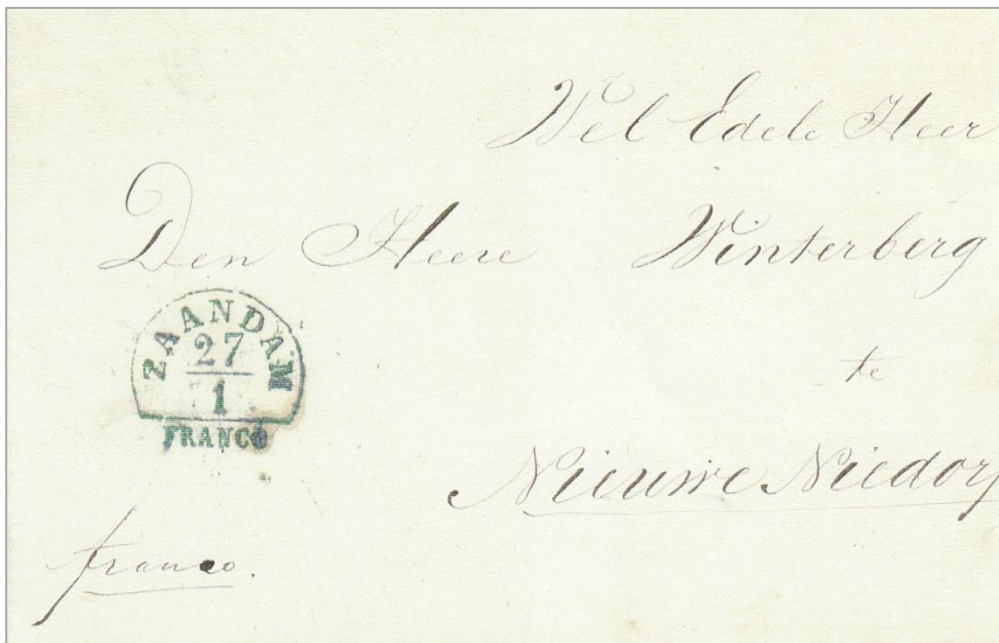 Wel Edele Heer
Den Heere Winterberg
ZAANDAM
27
1
FRANCO
te
Nieuwe Niedorp
franco.